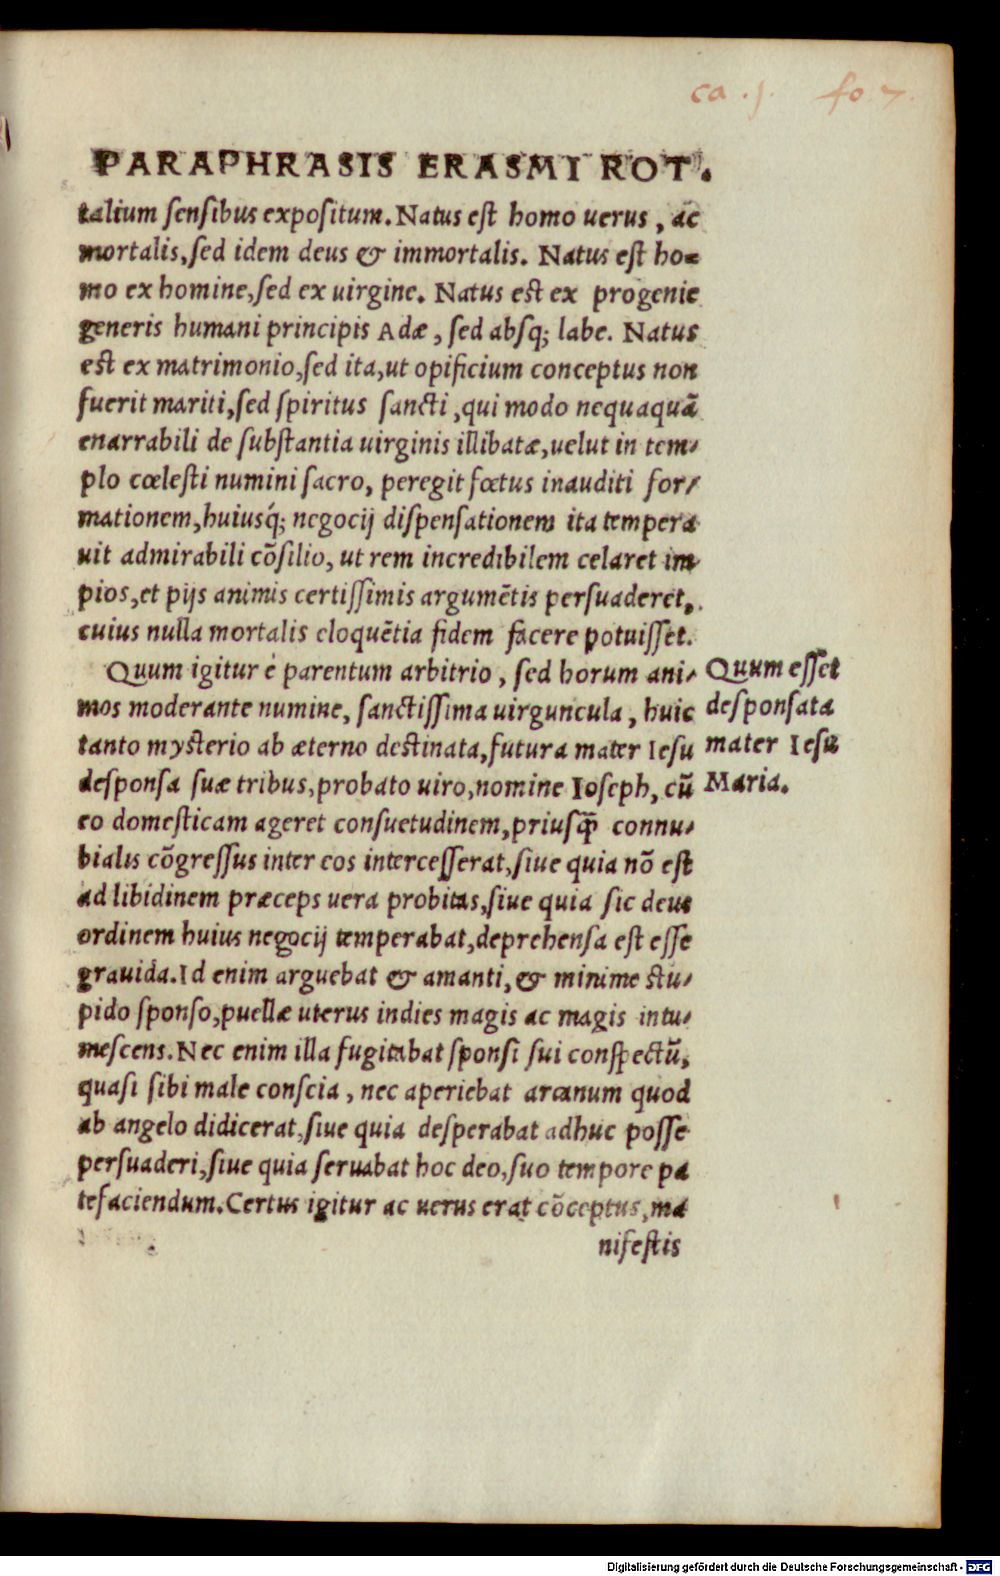 ca . j. fo 7.
PARAPHRASIS ERASMI ROT.
talium sensibus expositum. Natus est homo uerus, ac
mortalis, sed idem deus & immortalis. Natus est ho-
mo ex homine, sed ex uirgine. Natus est ex progenie
generis humani principis Adæ, sed absq; labe. Natus
est ex matrimonio, sed ita, ut opificium conceptus non
fuerit mariti, sed spiritus sancti, qui modo nequaquã
enarrabili de substantia uirginis illibatæ, uelut in tem-
plo cœlesti numini sacro, peregit fœtus inauditi for-
mationem, huiusq́; negocij dispensationem ita tempera
uit admirabili cõsilio, ut rem incredibilem celaret im-
pios, et pijs animis certissimis argumẽtis persuaderet,
cuius nulla mortalis eloquẽtia fidem facere potuisset.
Quum igitur è parentum arbitrio, sed horum ani-
mos moderante numine, sanctissima uirguncula, huic
tanto mysterio ab æterno destinata, futura mater Iesu
desponsa suæ tribus, probato uiro, nomine Ioseph, cũ
eo domesticam ageret consuetudinem, priusq̃ connu-
bialis cõgressus inter eos intercesserat, siue quia nõ est
ad libidinem præceps uera probitas, siue quia sic deus
ordinem huius negocij temperabat, deprehensa est esse
grauida. Id enim arguebat & amanti, & minime stu-
pido sponso, puellæ uterus indies magis ac magis intu-
mescens. Nec enim illa fugitabat sponsi sui conspectũ,
quasi sibi male conscia, nec aperiebat arcanum quod
ab angelo didicerat, siue quia desperabat adhuc posse
persuaderi, siue quia seruabat hoc deo, suo tempore pa
tefaciendum. Certus igitur ac uerus erat cõceptus, ma
nifestis
Quum esset
desponsata
mater Iesu
Maria.
Digitalisierung gefördert durch die Deutsche Forschungsgemeinschaft - DFG